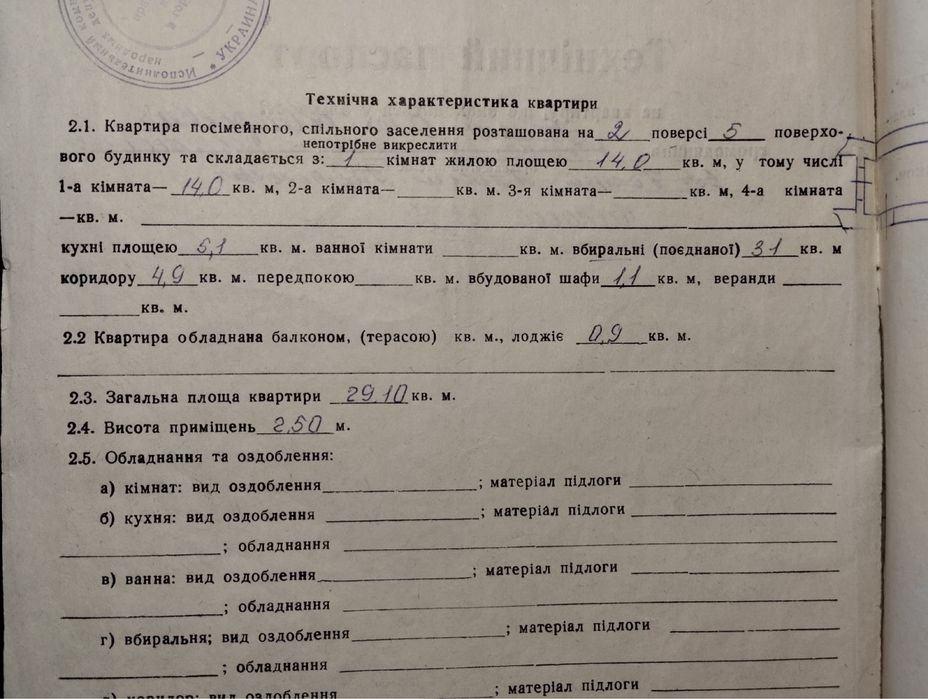 Исполнительный
народных
* УКРАИНА
Технічна характеристика квартири
2.1. Квартира посімейного, спільного заселення розташована на 2 поверсі 5 поверхо-
непотрібне викреслити
вого будинку та складається з: 1 кімнат жилою площею 14,0 кв. м, у тому числі
1-а кімната— 14,0 кв. м, 2-а кімната—______ кв. м. 3-я кімната—________кв. м, 4-а кімната
—кв. м.
кухні площею 5,1 кв. м. ванної кімнати ________ кв. м. вбиральні (поєднаної) 3.1 кв. м
коридору 4,9 кв. м. передпокою______ кв. м. вбудованої шафи 1,1 кв. м, веранди ______
________кв. м.
2.2 Квартира обладнана балконом, (терасою) кв. м., лоджіє 0,9 кв. м.
2.3. Загальна площа квартири 29.10 кв. м.
2.4. Висота приміщень 2,50 м.
2.5. Обладнання та оздоблення:
а) кімнат: вид оздоблення______________; матеріал підлоги ______________
б) кухня: вид оздоблення ______________; матеріал підлоги ______________
______________; обладнання ______________
в) ванна: вид оздоблення______________; матеріал підлоги ______________
______________; обладнання ______________
г) вбиральня; вид оздоблення______________; матеріал підлоги ______________
______________; обладнання ______________
коридор: вид оздоблення ______________; матеріал підлоги ______________